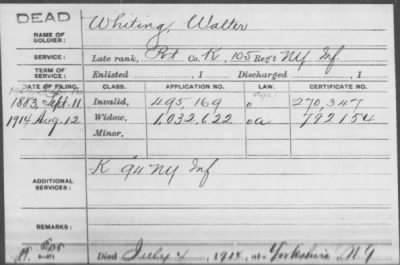 DEAD
NAME OF SOLDIER: Whiting, Walter
SERVICE: Late rank, Pvt Co. K, 105 Reg't NY Inf.
TERM OF SERVICE: Enlisted , 1 Discharged , 1
DATE OF FILING. CLASS. APPLICATION NO. LAW. CERTIFICATE NO.
1883, Sept. 11 Invalid, 495,169 270,347
1914 Aug. 12 Widow, 1,032,622 792154
Minor,
ADDITIONAL SERVICES: K 94 NY Inf
REMARKS:
Died July 4, 1914, at Yorkshire N.Y